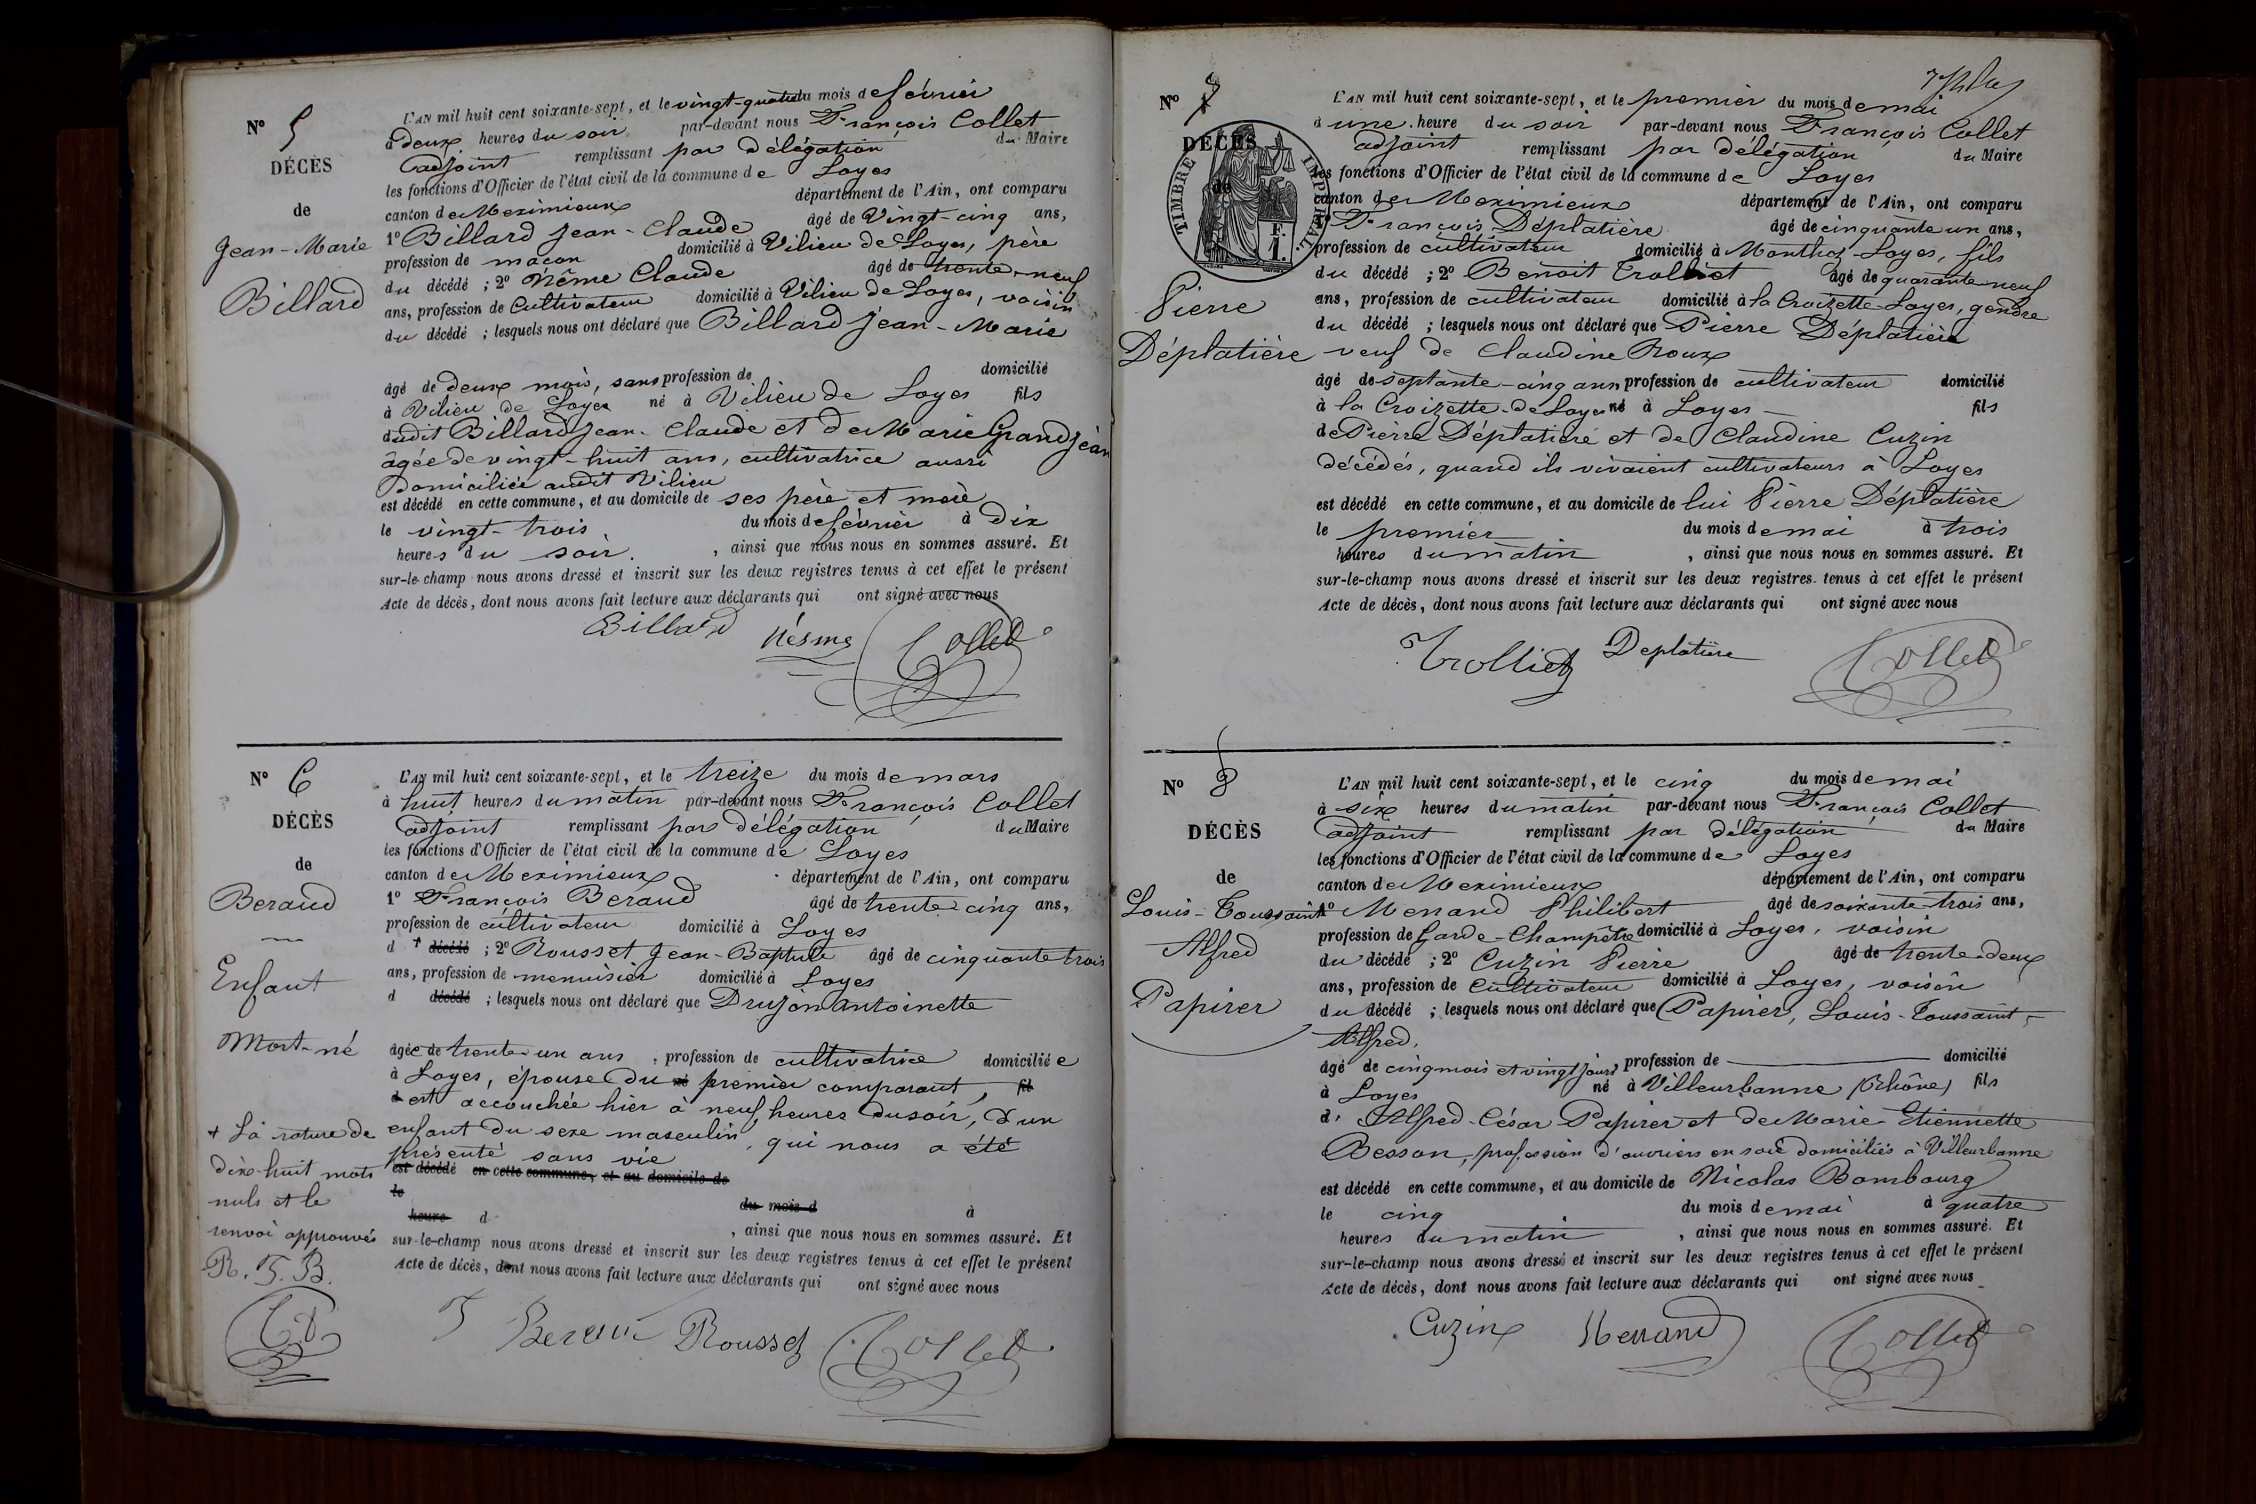 N° 5
DÉCÈS
de
Jean-Marie
Billard
L'AN mil huit cent soixante-sept, et le vingt-quatre du mois de février
à deux heures du soir par-devant nous François Collet
adjoint remplissant par délégation du Maire
les fonctions d'Officier de l'état civil de la commune de Loyes
canton de Meximieux département de l'Ain, ont comparu
1° Billard Jean-Claude âgé de Vingt-cinq ans,
profession de maçon domicilié à Vilieu de Loyes, père
du décédé ; 2° Nême Claude âgé de trente-neuf
ans, profession de Cultivateur domicilié à Vilieu de Loyes, voisin
du décédé ; lesquels nous ont déclaré que Billard Jean-Marie
âgé de deux mois, sans profession de domicilié
à Vilieu de Loyes né à Vilieu de Loyes fils
dudit Billard Jean-Claude et de Marie Grandjean
âgée de vingt-huit ans, cultivatrice aussi
domiciliée audit Vilieu
est décédé en cette commune, et au domicile de ses père et mère
le vingt-trois du mois de février à Dix
heures du soir. , ainsi que nous nous en sommes assuré. Et
sur-le-champ nous avons dressé et inscrit sur les deux registres tenus à cet effet le présent
Acte de décès, dont nous avons fait lecture aux déclarants qui ont signé avec nous
Billard Nésme Collet
N° 6
DÉCÈS
de
Beraud
Enfant
Mort-né
+ La rature de
dix-huit mots
nuls et le
renvoi approuvés
R. F. B.
L'AN mil huit cent soixante-sept, et le treize du mois de mars
à huit heures du matin par-devant nous François Collet
adjoint remplissant par délégation du Maire
les fonctions d'Officier de l'état civil de la commune de Loyes
canton de Meximieux département de l'Ain, ont comparu
1° François Beraud âgé de trente cinq ans,
profession de cultivateur domicilié à Loyes
d + décédé ; 2° Rousset Jean-Baptiste âgé de cinquante trois
ans, profession de menuisier domicilié à Loyes
d décédé ; lesquels nous ont déclaré que Drujon Antoinette
âgée de trente un ans, profession de cultivatrice domiciliée
à Loyes, épouse du né premier comparant, fil
d est accouchée hier à neuf heures du soir, d'un
enfant du sexe masculin, qui nous a été
présenté sans vie
est décédé en cette commune, et au domicile de
le du mois d à
heure d , ainsi que nous nous en sommes assuré. Et
sur-le-champ nous avons dressé et inscrit sur les deux registres tenus à cet effet le présent
Acte de décès, dont nous avons fait lecture aux déclarants qui ont signé avec nous
F Beraud Rousset Collet
N° 7
DÉCÈS
de
TIMBRE IMPÉRIAL
1 F.
Pierre
Déplatière
L'AN mil huit cent soixante-sept, et le premier du mois de mai
à une heure du soir par-devant nous François Collet
adjoint remplissant par délégation du Maire
les fonctions d'Officier de l'état civil de la commune de Loyes
canton de Meximieux département de l'Ain, ont comparu
1° François Déplatière âgé de cinquante un ans,
profession de cultivateur domicilié à Monthoz-Loyes, fils
du décédé ; 2° Benoit Trolliet âgé de quarante-neuf
ans, profession de cultivateur domicilié à la Croizette-Loyes, gendre
du décédé ; lesquels nous ont déclaré que Pierre Déplatière
veuf de Claudine Roux
âgé de septante-cinq ans profession de cultivateur domicilié
à la Croizette-de Loyes né à Loyes fils
de Pierre Déplatière et de Claudine Cuzin
décédés, quand ils vivaient cultivateurs à Loyes
est décédé en cette commune, et au domicile de lui Pierre Déplatière
le premier du mois de mai à trois
heures du matin , ainsi que nous nous en sommes assuré. Et
sur-le-champ nous avons dressé et inscrit sur les deux registres tenus à cet effet le présent
Acte de décès, dont nous avons fait lecture aux déclarants qui ont signé avec nous
Trolliet Deplatière Collet
N° 8
DÉCÈS
de
Louis-Toussaint
Alfred
Papirer
L'AN mil huit cent soixante-sept, et le cinq du mois de mai
à six heures du matin par-devant nous François Collet
adjoint remplissant par délégation du Maire
les fonctions d'Officier de l'état civil de la commune de Loyes
canton de Meximieux département de l'Ain, ont comparu
1° Menand Philibert âgé de soixante-trois ans,
profession de Garde-Champêtre domicilié à Loyes, voisin
du décédé ; 2° Cuzin Pierre âgé de trente-deux
ans, profession de Cultivateur domicilié à Loyes, voisin
du décédé ; lesquels nous ont déclaré que Papirer, Louis-Toussaint-
Alfred.
âgé de cinq mois et vingt jours profession de domicilié
à Loyes né à Villeurbanne (Rhône) fils
d' Alfred-César Papirer et de Marie Etiennette
Besson, profession d'ouvriers en soie domiciliés à Villeurbanne
est décédé en cette commune, et au domicile de Nicolas Bombourg
le cinq du mois de mai à quatre
heures du matin , ainsi que nous nous en sommes assuré. Et
sur-le-champ nous avons dressé et inscrit sur les deux registres tenus à cet effet le présent
Acte de décès, dont nous avons fait lecture aux déclarants qui ont signé avec nous
Cuzin Menand Collet